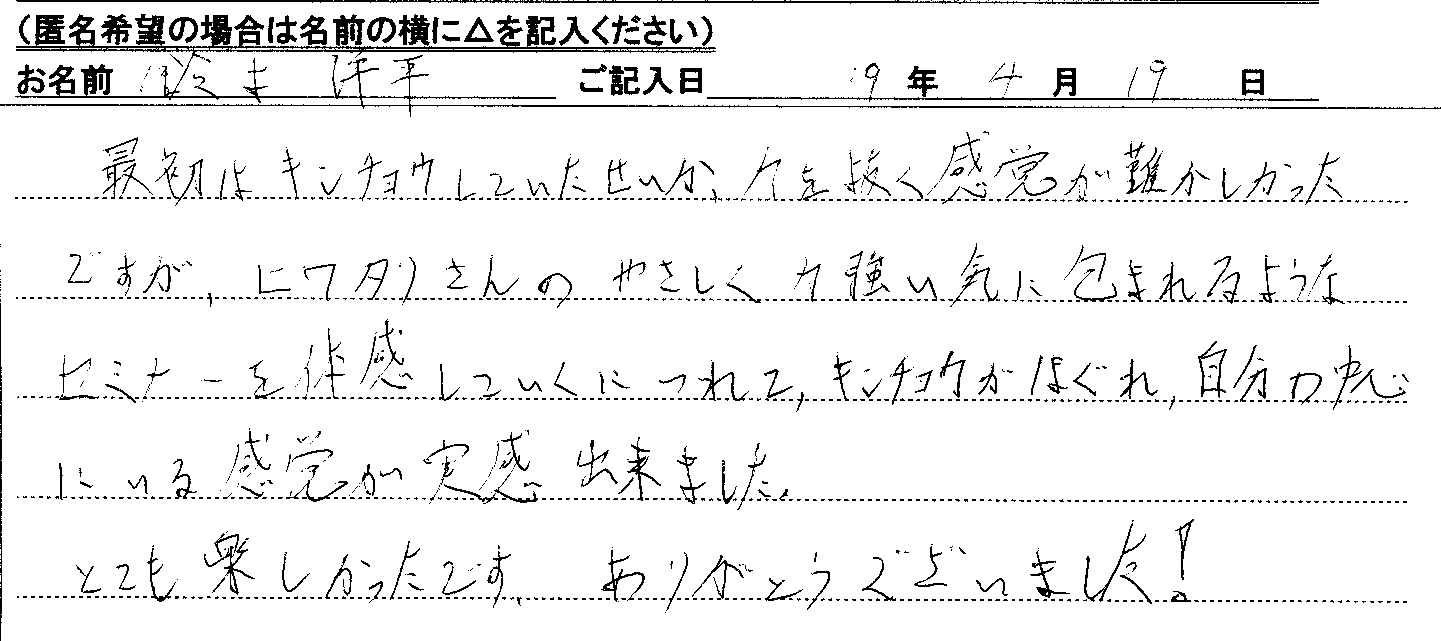 （匿名希望の場合は名前の横に△を記入ください）
お名前 洋平 ご記入日 19 年 4 月 19 日
最初はキンチョウしていたせいか、力を抜く感覚が難かしかった
ですが、ヒワタリさんの やさしく力強い気に包まれるような
セミナーを体感していくにつれて、キンチョウがほぐれ、自分の中心
にいる感覚が実感出来ました。
とても楽しかったです。ありがとうございました！